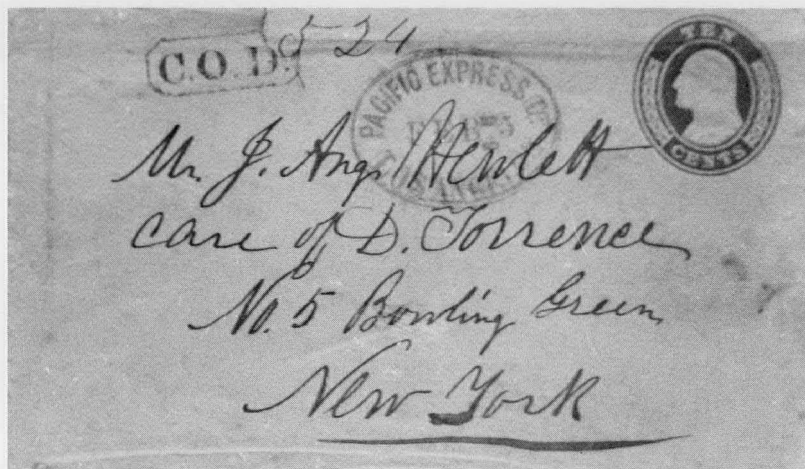 C.O.D. 524
PACIFIC EXPRESS
TEN
CENTS
Mr. J. Augs Hewlett
care of D. Torrence
No. 5 Bowling Green
New York